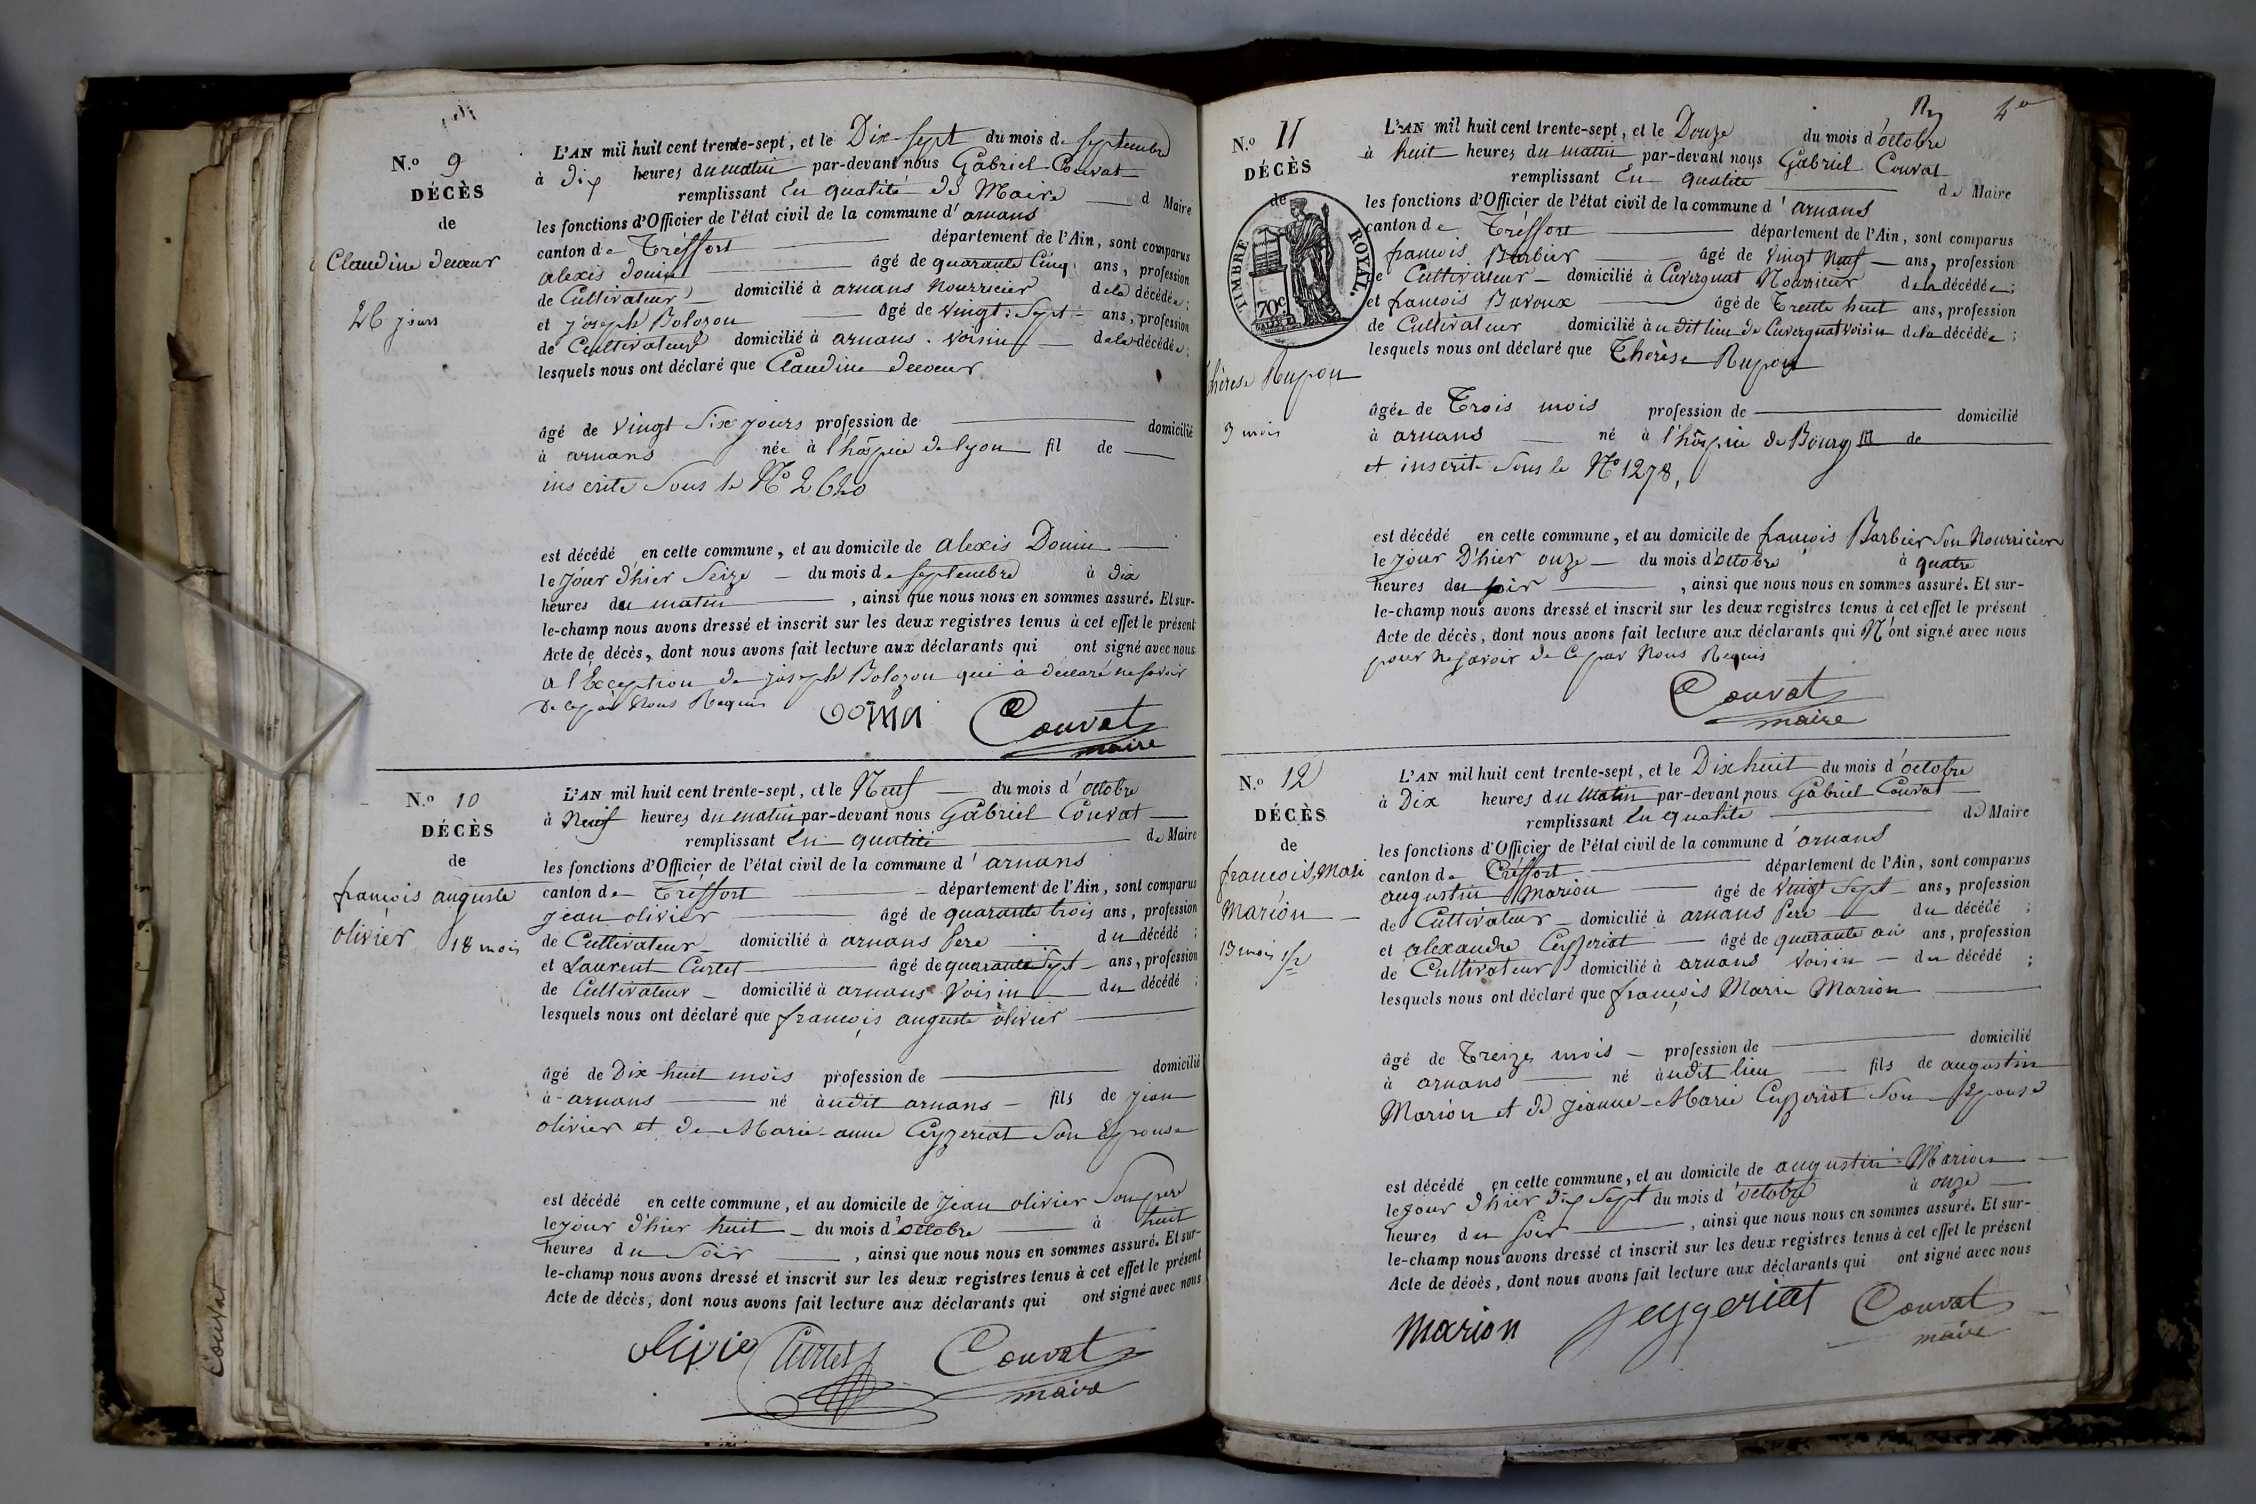 N.º 9
DÉCÈS
de
Claudine decœur
26 jours
L'AN mil huit cent trente-sept, et le Dix-sept du mois de septembre
à dix heures du matin par-devant nous Gabriel Couvat
remplissant En qualité de Maire d Maire
les fonctions d'Officier de l'état civil de la commune d'arnans
canton de Tréffort département de l'Ain, sont comparus
alexis donin âgé de quarante Cinq ans, profession
de Cultivateur domicilié à arnans Nourricier de la décédée;
et joseph Bolozon âgé de vingt-sept ans, profession
de Cultivateur domicilié à arnans voisin de la décédée;
lesquels nous ont déclaré que Claudine decœur
âgé de vingt Six jours profession de domicilié
à arnans née à l'hôspice de lyon fil de
inscrite Sous le Nº 2620
est décédé en cette commune, et au domicile de alexis Donin
le jour d'hier Seize du mois de septembre à dix
heures du matin, ainsi que nous nous en sommes assuré. Et sur-
le-champ nous avons dressé et inscrit sur les deux registres tenus à cet effet le présent
Acte de décès, dont nous avons fait lecture aux déclarants qui ont signé avec nous
a l'Exception de joseph Bolozon qui à declaré ne savoir
De ce par Nous Requis
donin Couvat
maire
N.º 10
DÉCÈS
de
françois auguste
olivier 18 mois
L'AN mil huit cent trente-sept, et le Neuf du mois d'octobre
à Neuf heures du matin par-devant nous Gabriel Couvat
remplissant En qualité de Maire
les fonctions d'Officier de l'état civil de la commune d'arnans
canton de Tréffort département de l'Ain, sont comparus
jean olivier âgé de quarante trois ans, profession
de Cultivateur domicilié à arnans Pere du décédé;
et Laurent Curtet âgé de quarante Sept ans, profession
de Cultivateur domicilié à arnans Voisin du décédé;
lesquels nous ont déclaré que françois auguste olivier
âgé de Dix-huit mois profession de domicilié
à arnans né àudit arnans fils de jean
olivier et de Marie-anne Ceyzeriat Son Epouse
est décédé en cette commune, et au domicile de jean olivier Son pere
le jour d'hier huit du mois d'octobre à huit
heures du Soir, ainsi que nous nous en sommes assuré. Et sur-
le-champ nous avons dressé et inscrit sur les deux registres tenus à cet effet le présent
Acte de décès, dont nous avons fait lecture aux déclarants qui ont signé avec nous
olivie Curtet Couvat
maire
Couvat
4e
N.º 11
DÉCÈS
de
TIMBRE ROYAL.
70c
Thérèse Rupon
3 mois
L'AN mil huit cent trente-sept, et le Douze du mois d'octobre
à huit heures du matin par-devant nous Gabriel Couvat
remplissant En qualité de Maire
les fonctions d'Officier de l'état civil de la commune d'arnans
canton de Tréffort département de l'Ain, sont comparus
françois Barbier âgé de vingt Neuf ans, profession
de Cultivateur domicilié à Cuvergnat Nourricier de la décédée;
et françois Bavoux âgé de Trente huit ans, profession
de Cultivateur domicilié àudit lieu de Cuvergnat voisin de la décédée;
lesquels nous ont déclaré que Thérèse Rupon
âgée de Trois mois profession de domicilié
à arnans né à l'hôspice de Bourg fil de
et inscrite Sous le Nº 1278,
est décédé en cette commune, et au domicile de françois Barbier Son Nourricier
le jour D'hier onze du mois d'octobre à quatre
heures du soir, ainsi que nous nous en sommes assuré. Et sur-
le-champ nous avons dressé et inscrit sur les deux registres tenus à cet effet le présent
Acte de décès, dont nous avons fait lecture aux déclarants qui N'ont signé avec nous
pour ne savoir de ce par Nous Requis
Couvat
maire
N.º 12
DÉCÈS
de
françois, Mari
Marion
13 mois 1/2
L'AN mil huit cent trente-sept, et le Dix huit du mois d'octobre
à Dix heures du Matin par-devant nous Gabriel Couvat
remplissant En qualité de Maire
les fonctions d'Officier de l'état civil de la commune d'arnans
canton de Tréffort département de l'Ain, sont comparus
augustin Marion âgé de vingt Sept ans, profession
de Cultivateur domicilié à arnans Pere du décédé;
et alexandre Ceyzeriat âgé de quarante un ans, profession
de Cultivateur domicilié à arnans Voisin du décédé;
lesquels nous ont déclaré que françois Marie Marion
âgé de Treize mois profession de domicilié
à arnans né àudit lieu fils de augustin
Marion et de jeanne-Marie Ceyzeriat Son Epouse
est décédé en cette commune, et au domicile de augustin Marion
le jour d'hier dix Sept du mois d'octobre à onze
heures du Soir, ainsi que nous nous en sommes assuré. Et sur-
le-champ nous avons dressé et inscrit sur les deux registres tenus à cet effet le présent
Acte de décès, dont nous avons fait lecture aux déclarants qui ont signé avec nous
Marion seyzeriat Couvat
maire